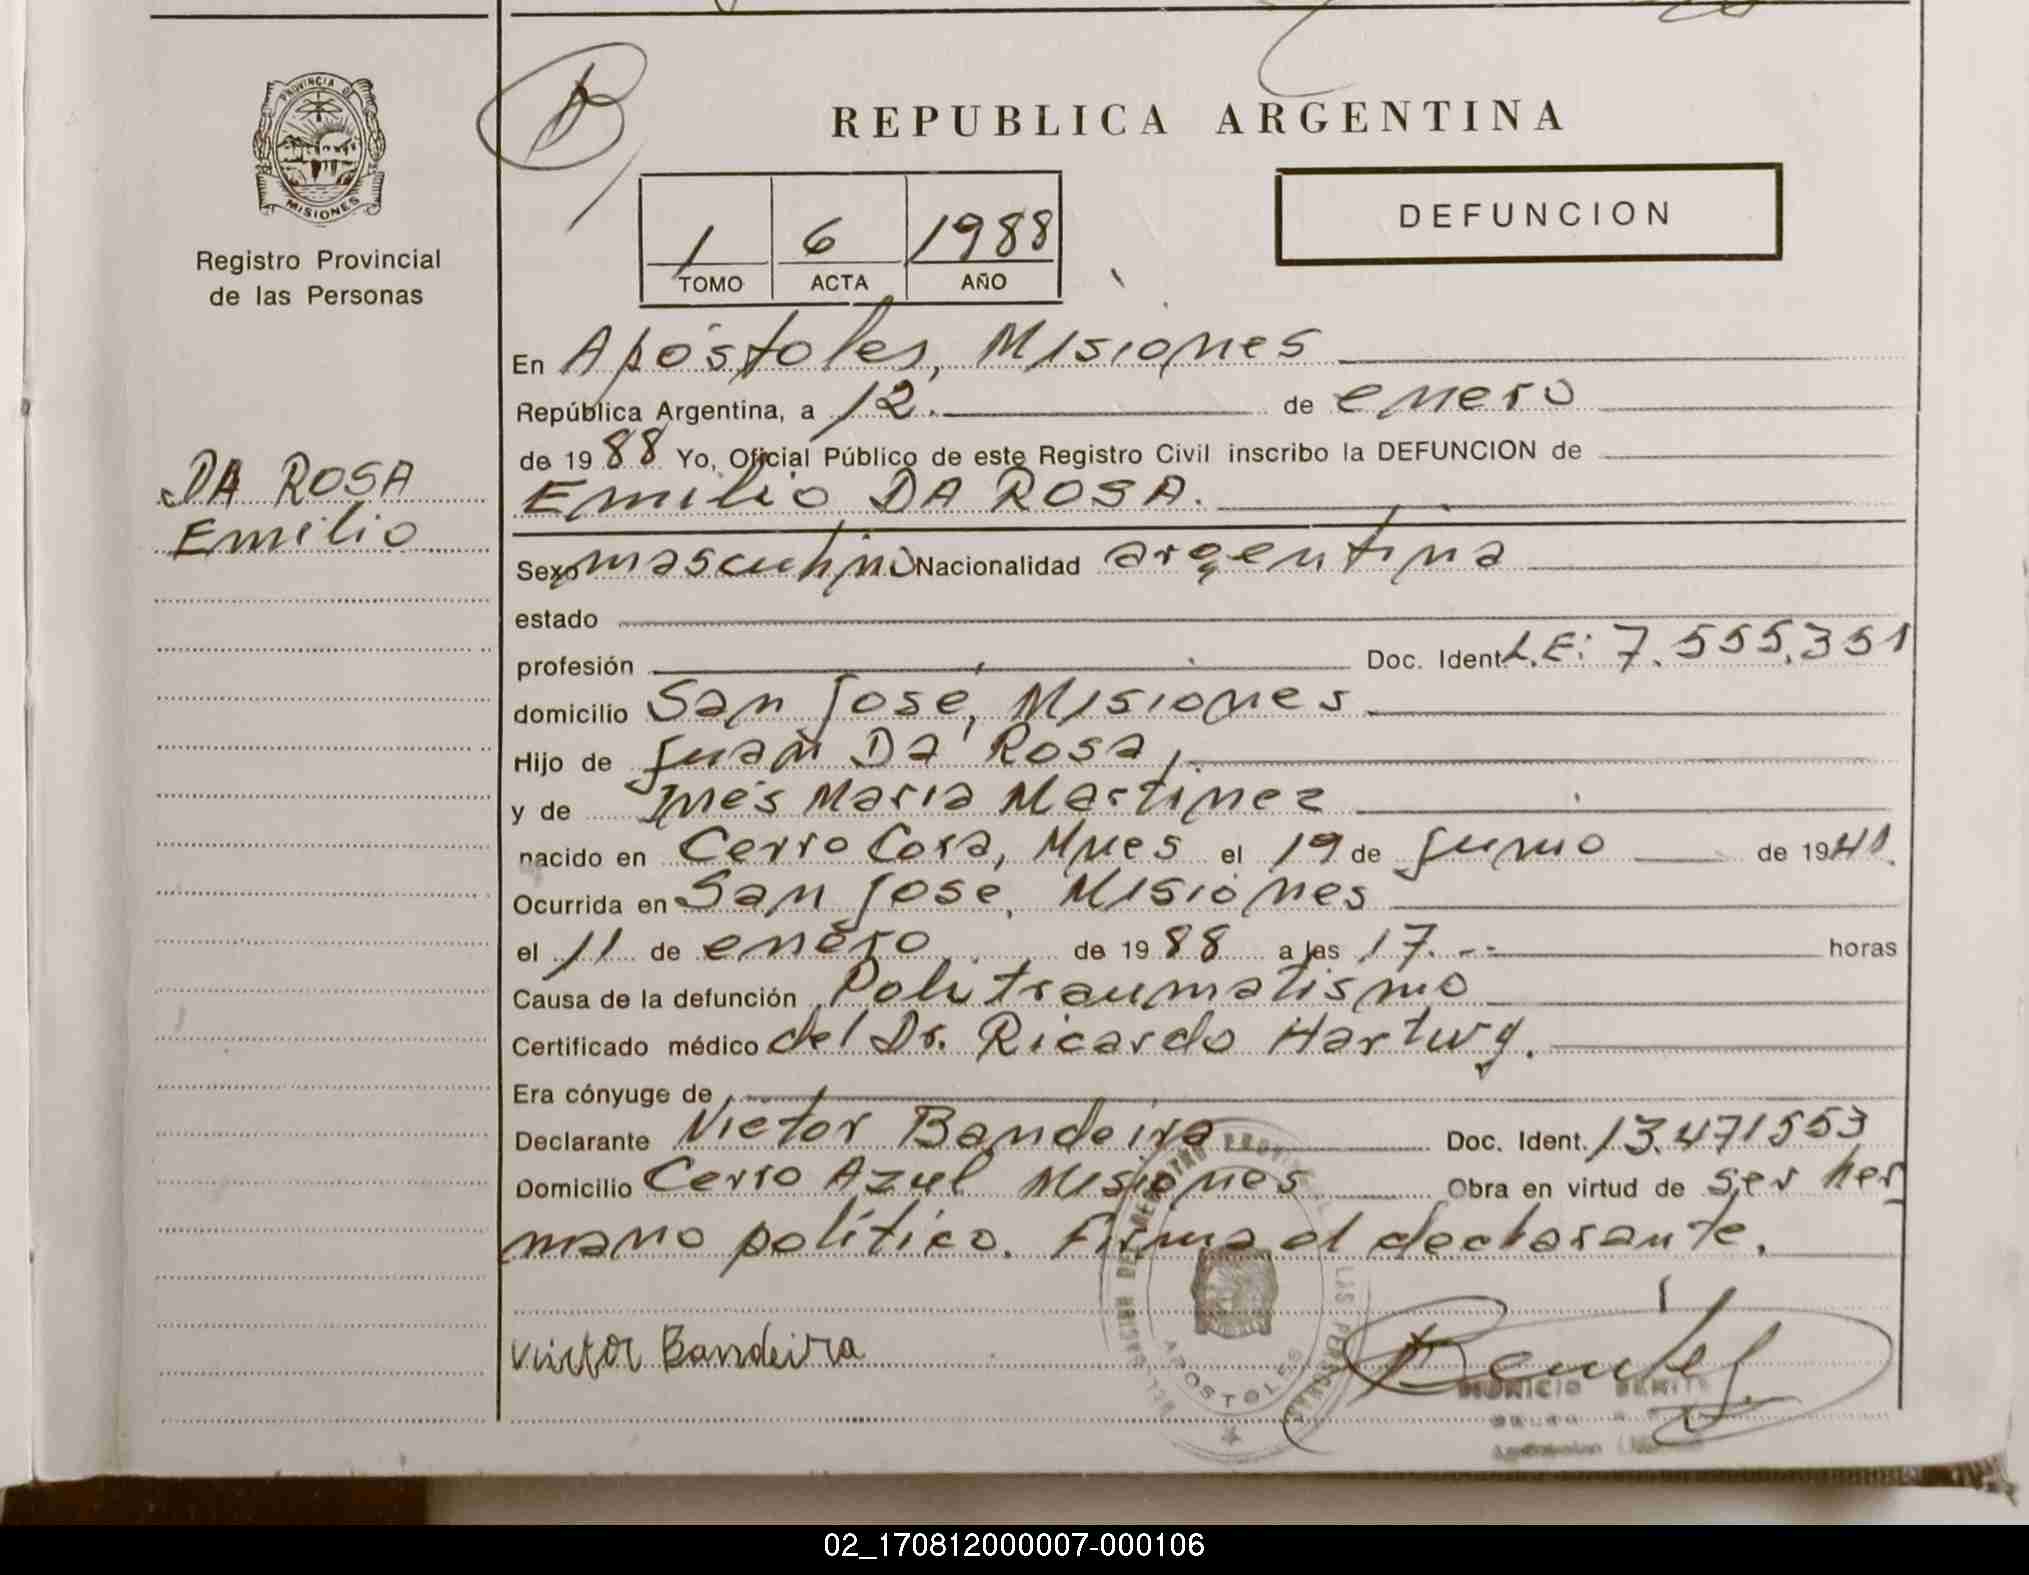 PROVINCIA DE
MISIONES
Registro Provincial
de las Personas
DA ROSA
Emilio
REPUBLICA ARGENTINA
DEFUNCION
1 6 1988
TOMO ACTA AÑO
En Apóstoles, Misiones
República Argentina, a 12. de enero
de 1988 Yo, Oficial Público de este Registro Civil inscribo la DEFUNCION de
Emilio DA ROSA.
Sexo masculino Nacionalidad argentina
estado
profesión Doc. Ident. L.E: 7.555.351
domicilio San José, Misiones
Hijo de Juan Da Rosa,
y de Inés María Martinez
nacido en Cerro Cora, Mnes el 19 de junio de 1941.
Ocurrida en San José, Misiones
el 11 de enero de 1988 a las 17.-- horas
Causa de la defunción Politraumatismo
Certificado médico del Dr. Ricardo Hartwg.
Era cónyuge de
Declarante Victor Bandeira Doc. Ident. 13.471553
Domicilio Cerro Azul Misiones Obra en virtud de ser her
mano político. Firma el declarante.
Victor Bandeira
APOSTOLES
02_170812000007-000106